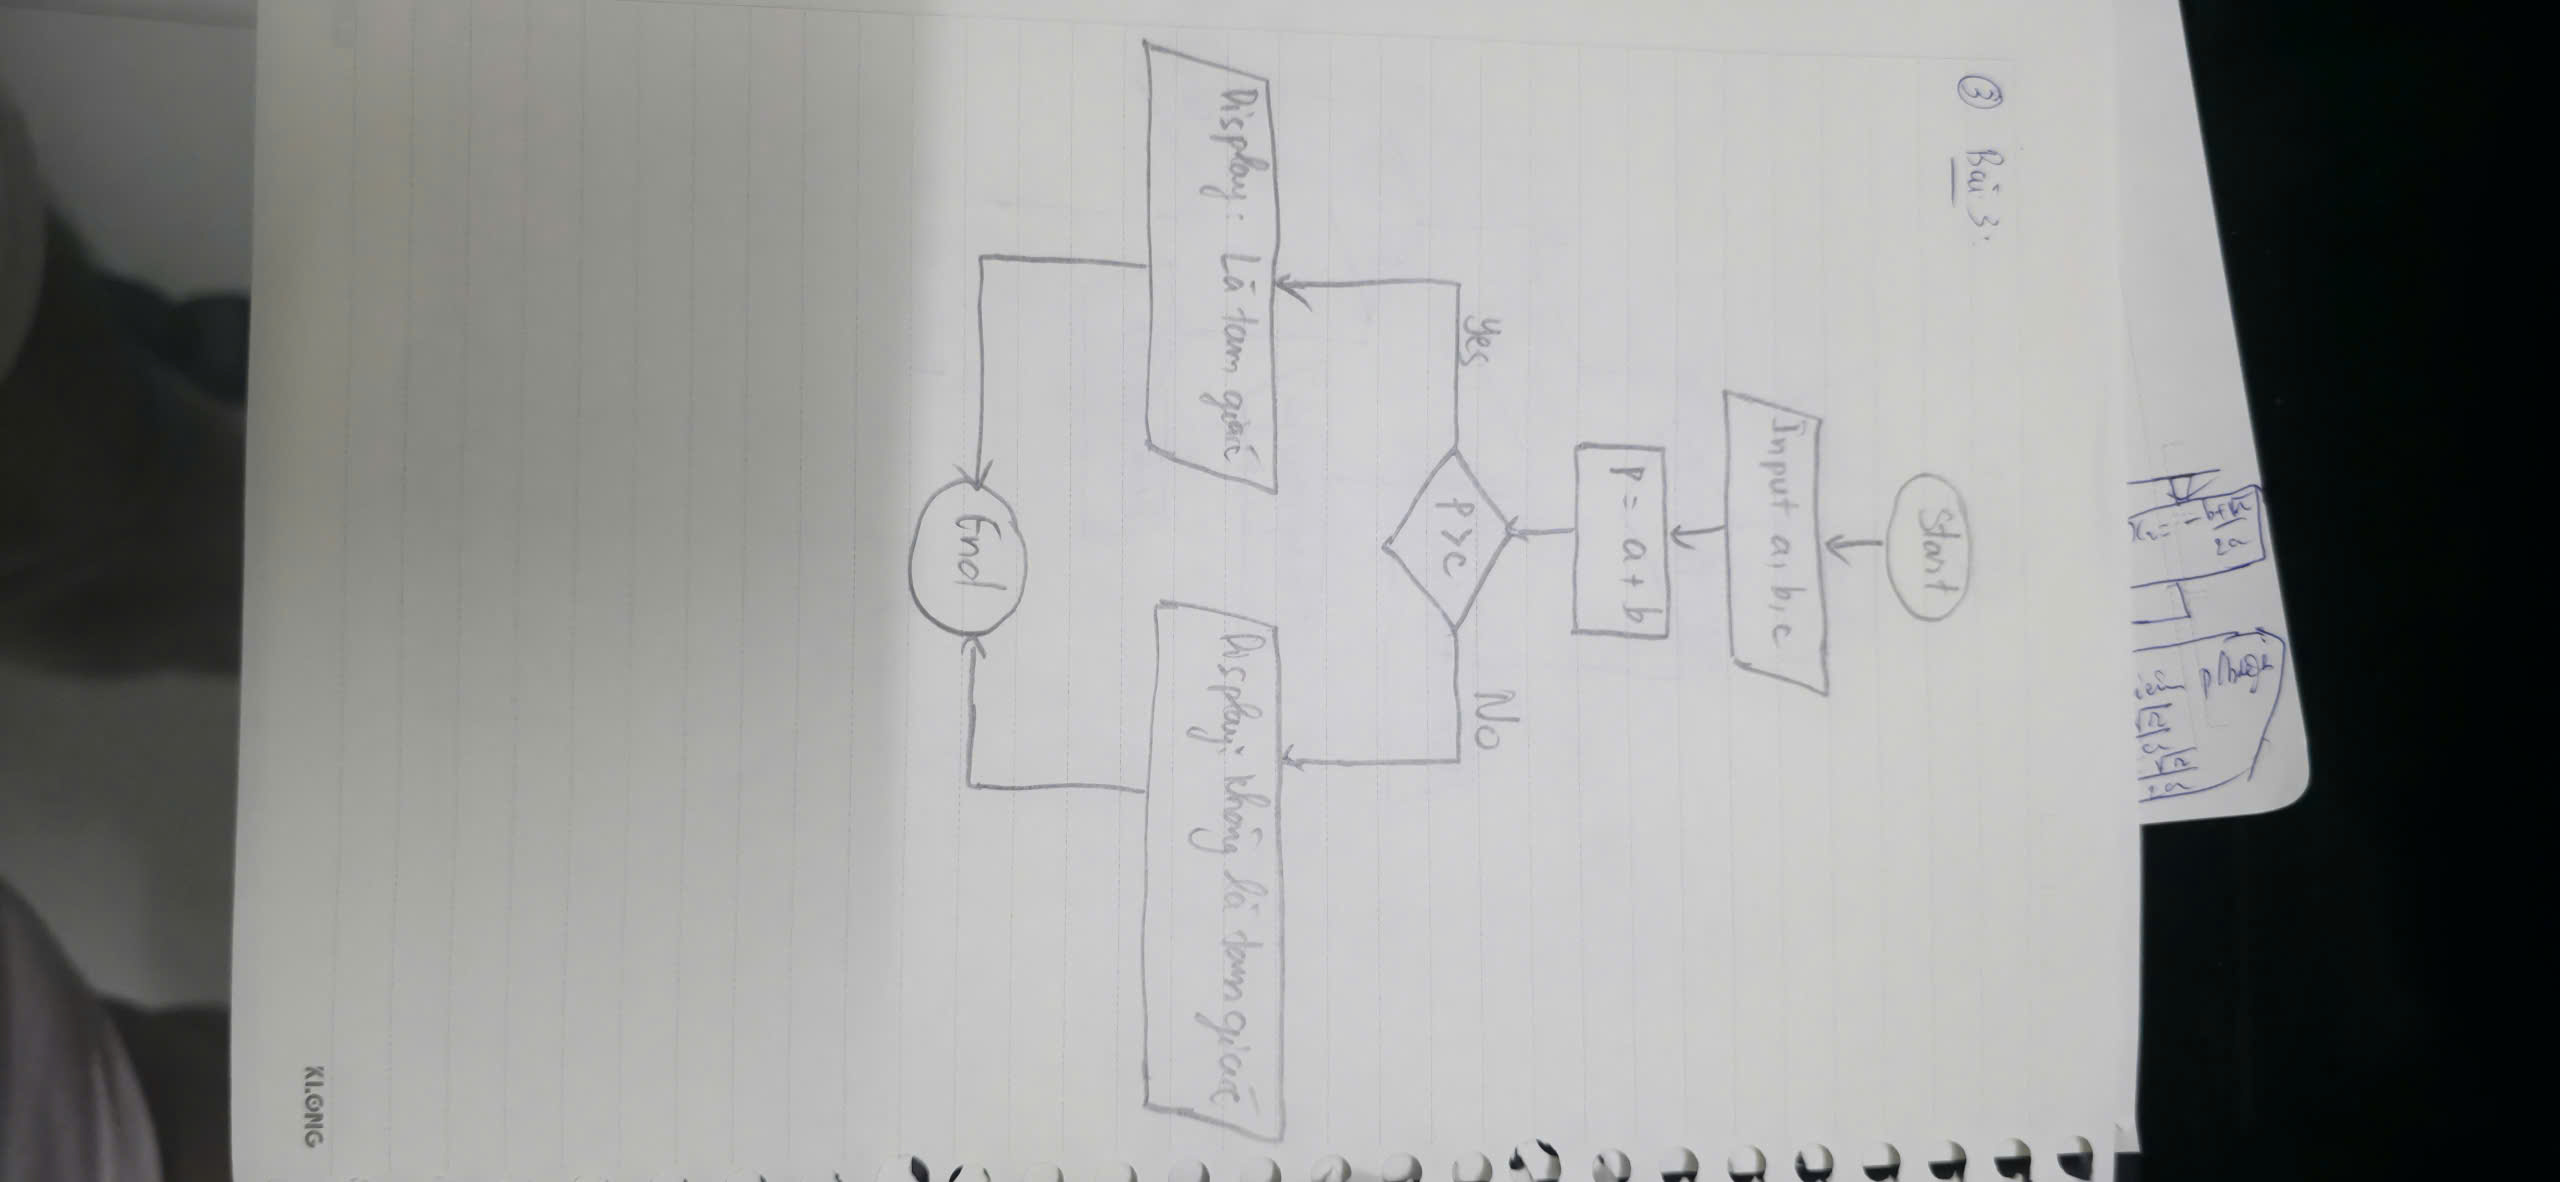 ③ Bài 3:
Start
Input a, b, c
P = a + b
P > c
Yes
No
Display: Là tam giác
Display: không là tam giác
End
KLONG